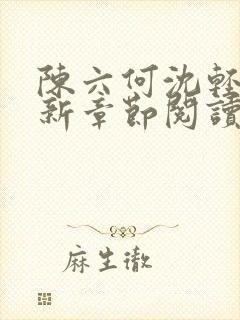 陳六何沈輕
新章節閱讀
麻生徹